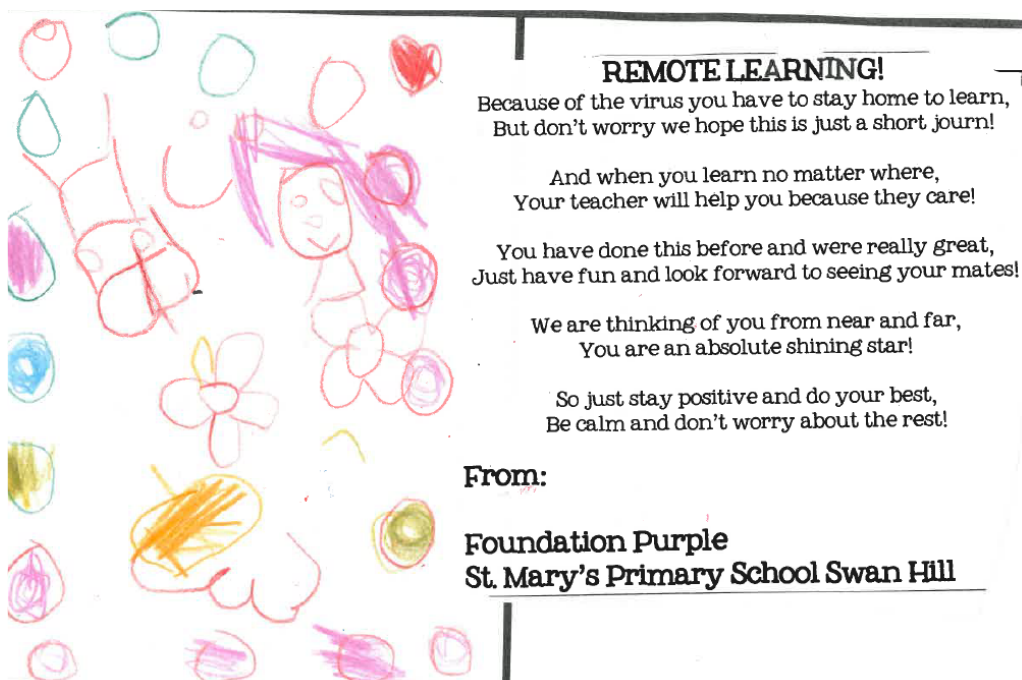 REMOTE LEARNING!
Because of the virus you have to stay home to learn,
But don't worry we hope this is just a short journ!
And when you learn no matter where,
Your teacher will help you because they care!
You have done this before and were really great,
Just have fun and look forward to seeing your mates!
We are thinking of you from near and far,
You are an absolute shining star!
So just stay positive and do your best,
Be calm and don't worry about the rest!
From:
Foundation Purple
St. Mary's Primary School Swan Hill